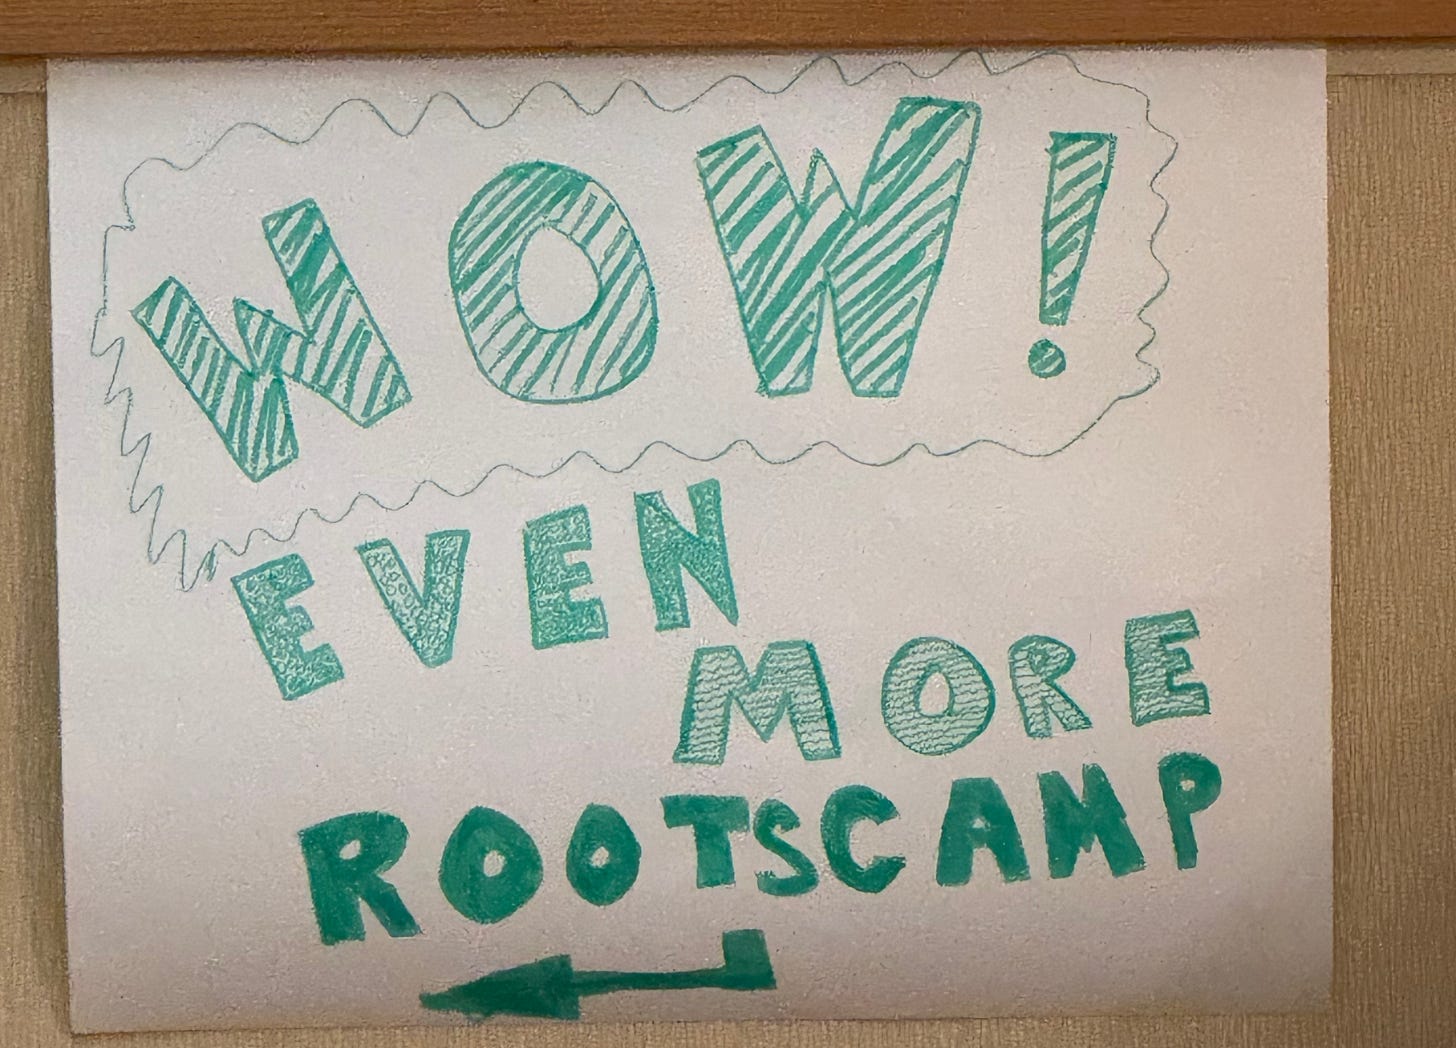 WOW!
EVEN
MORE
ROOTSCAMP